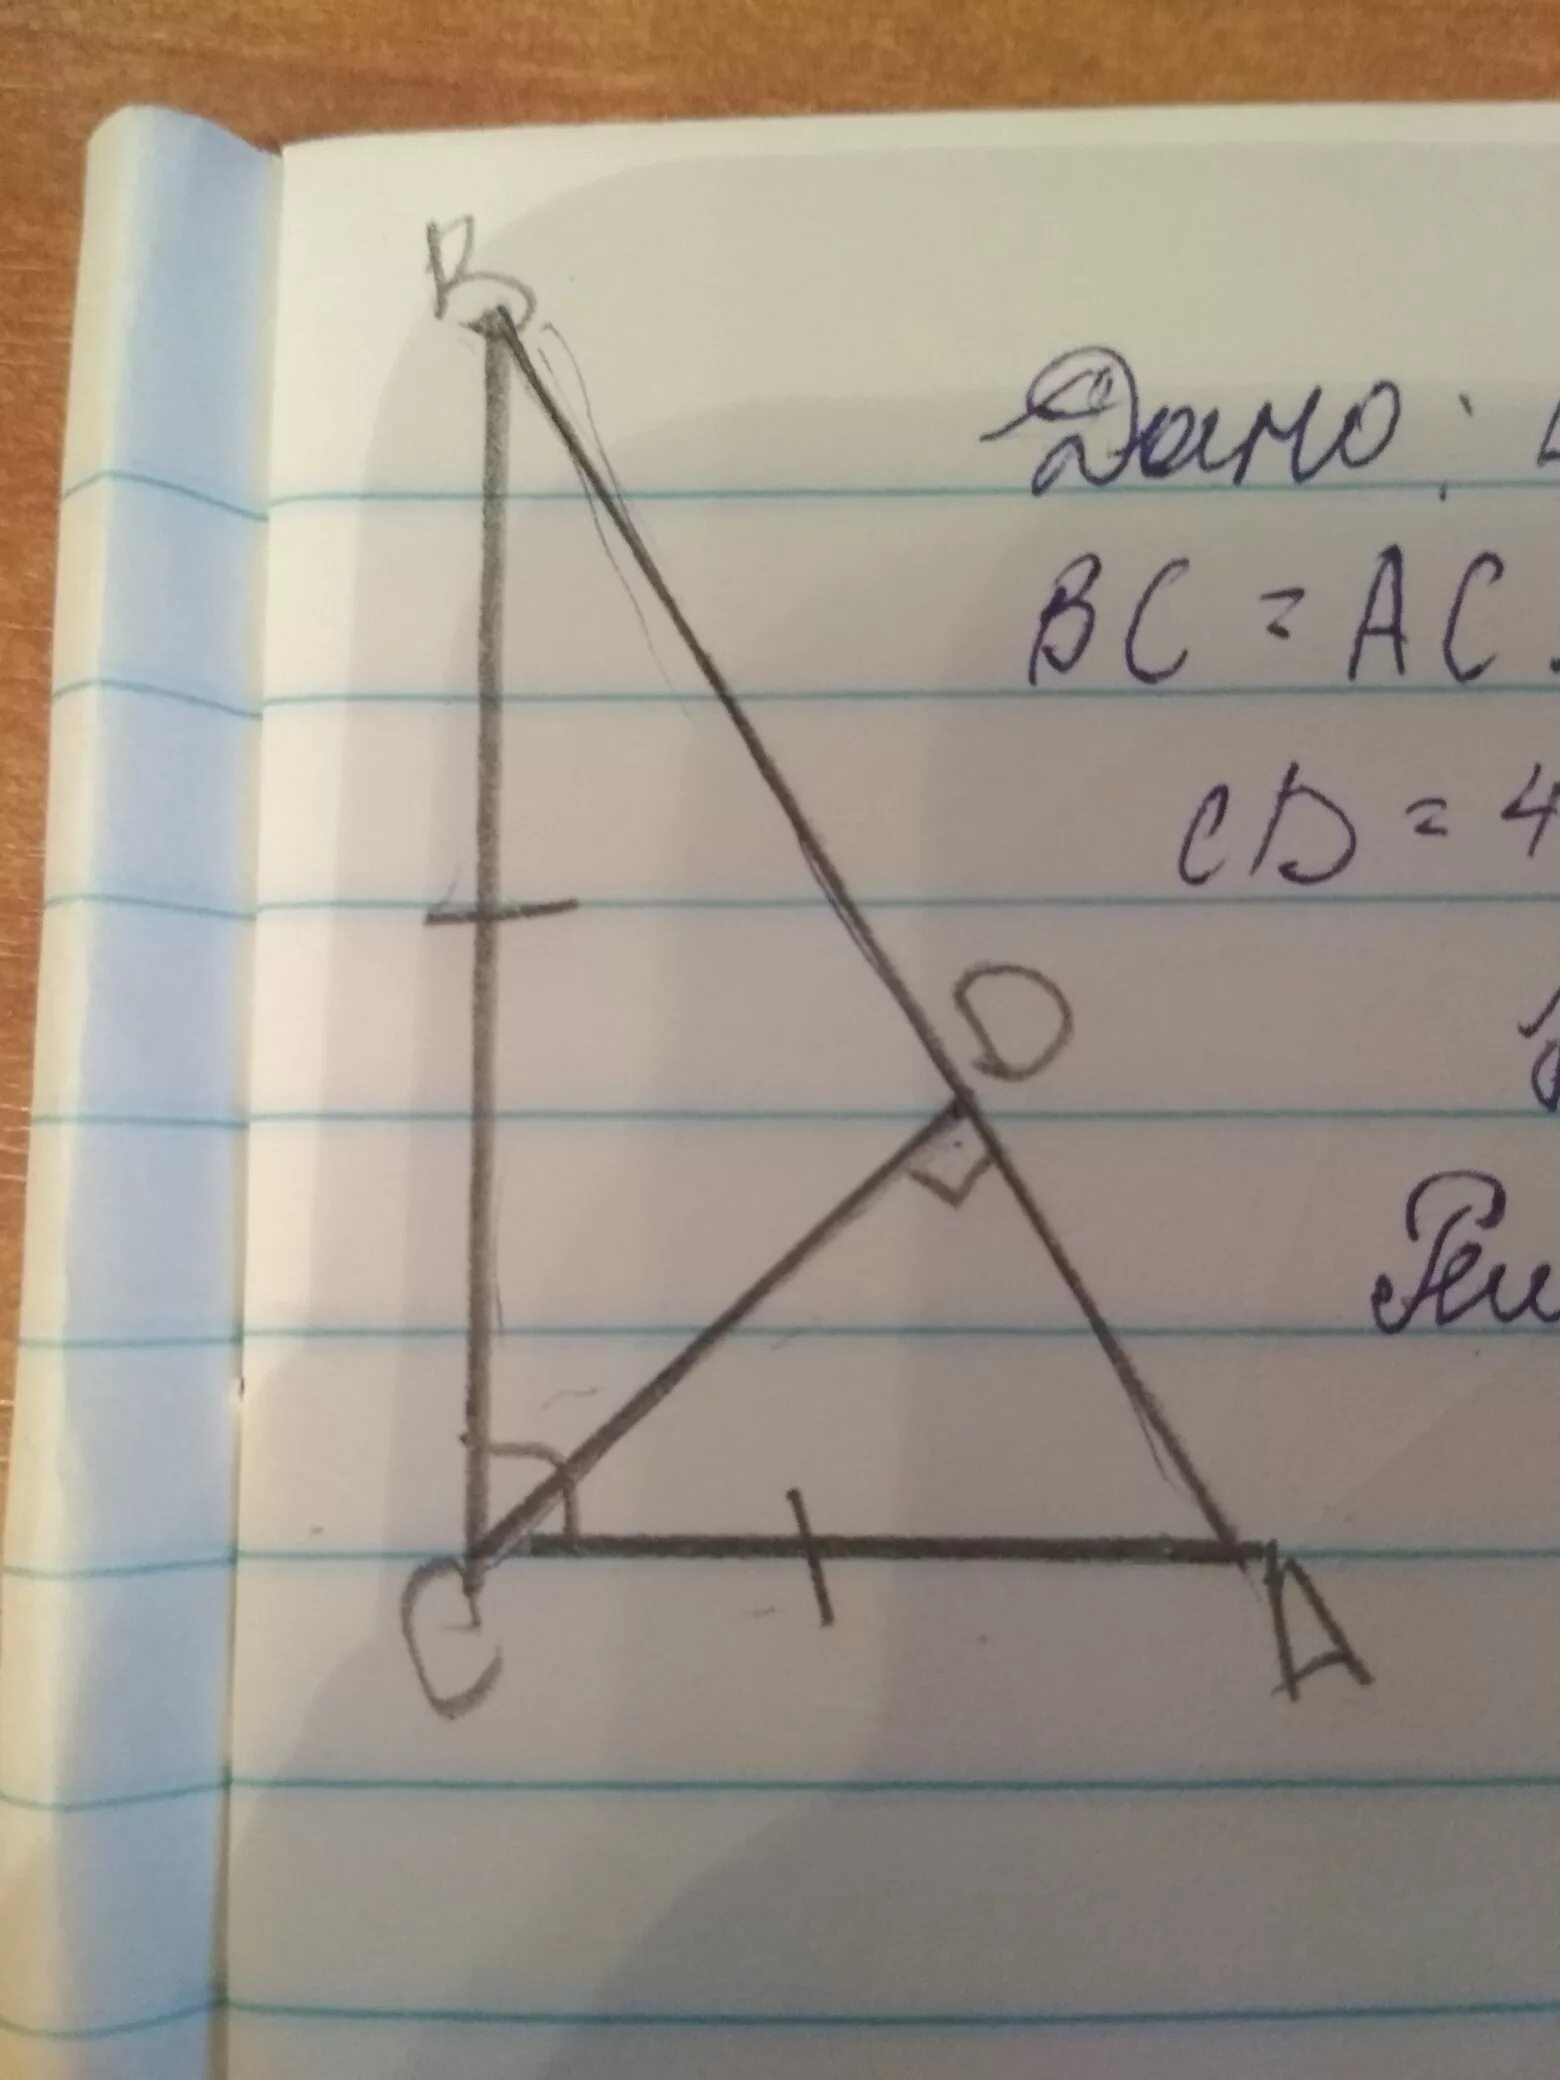 B
Дано:
BC = AC
CD = 4
D
C
A